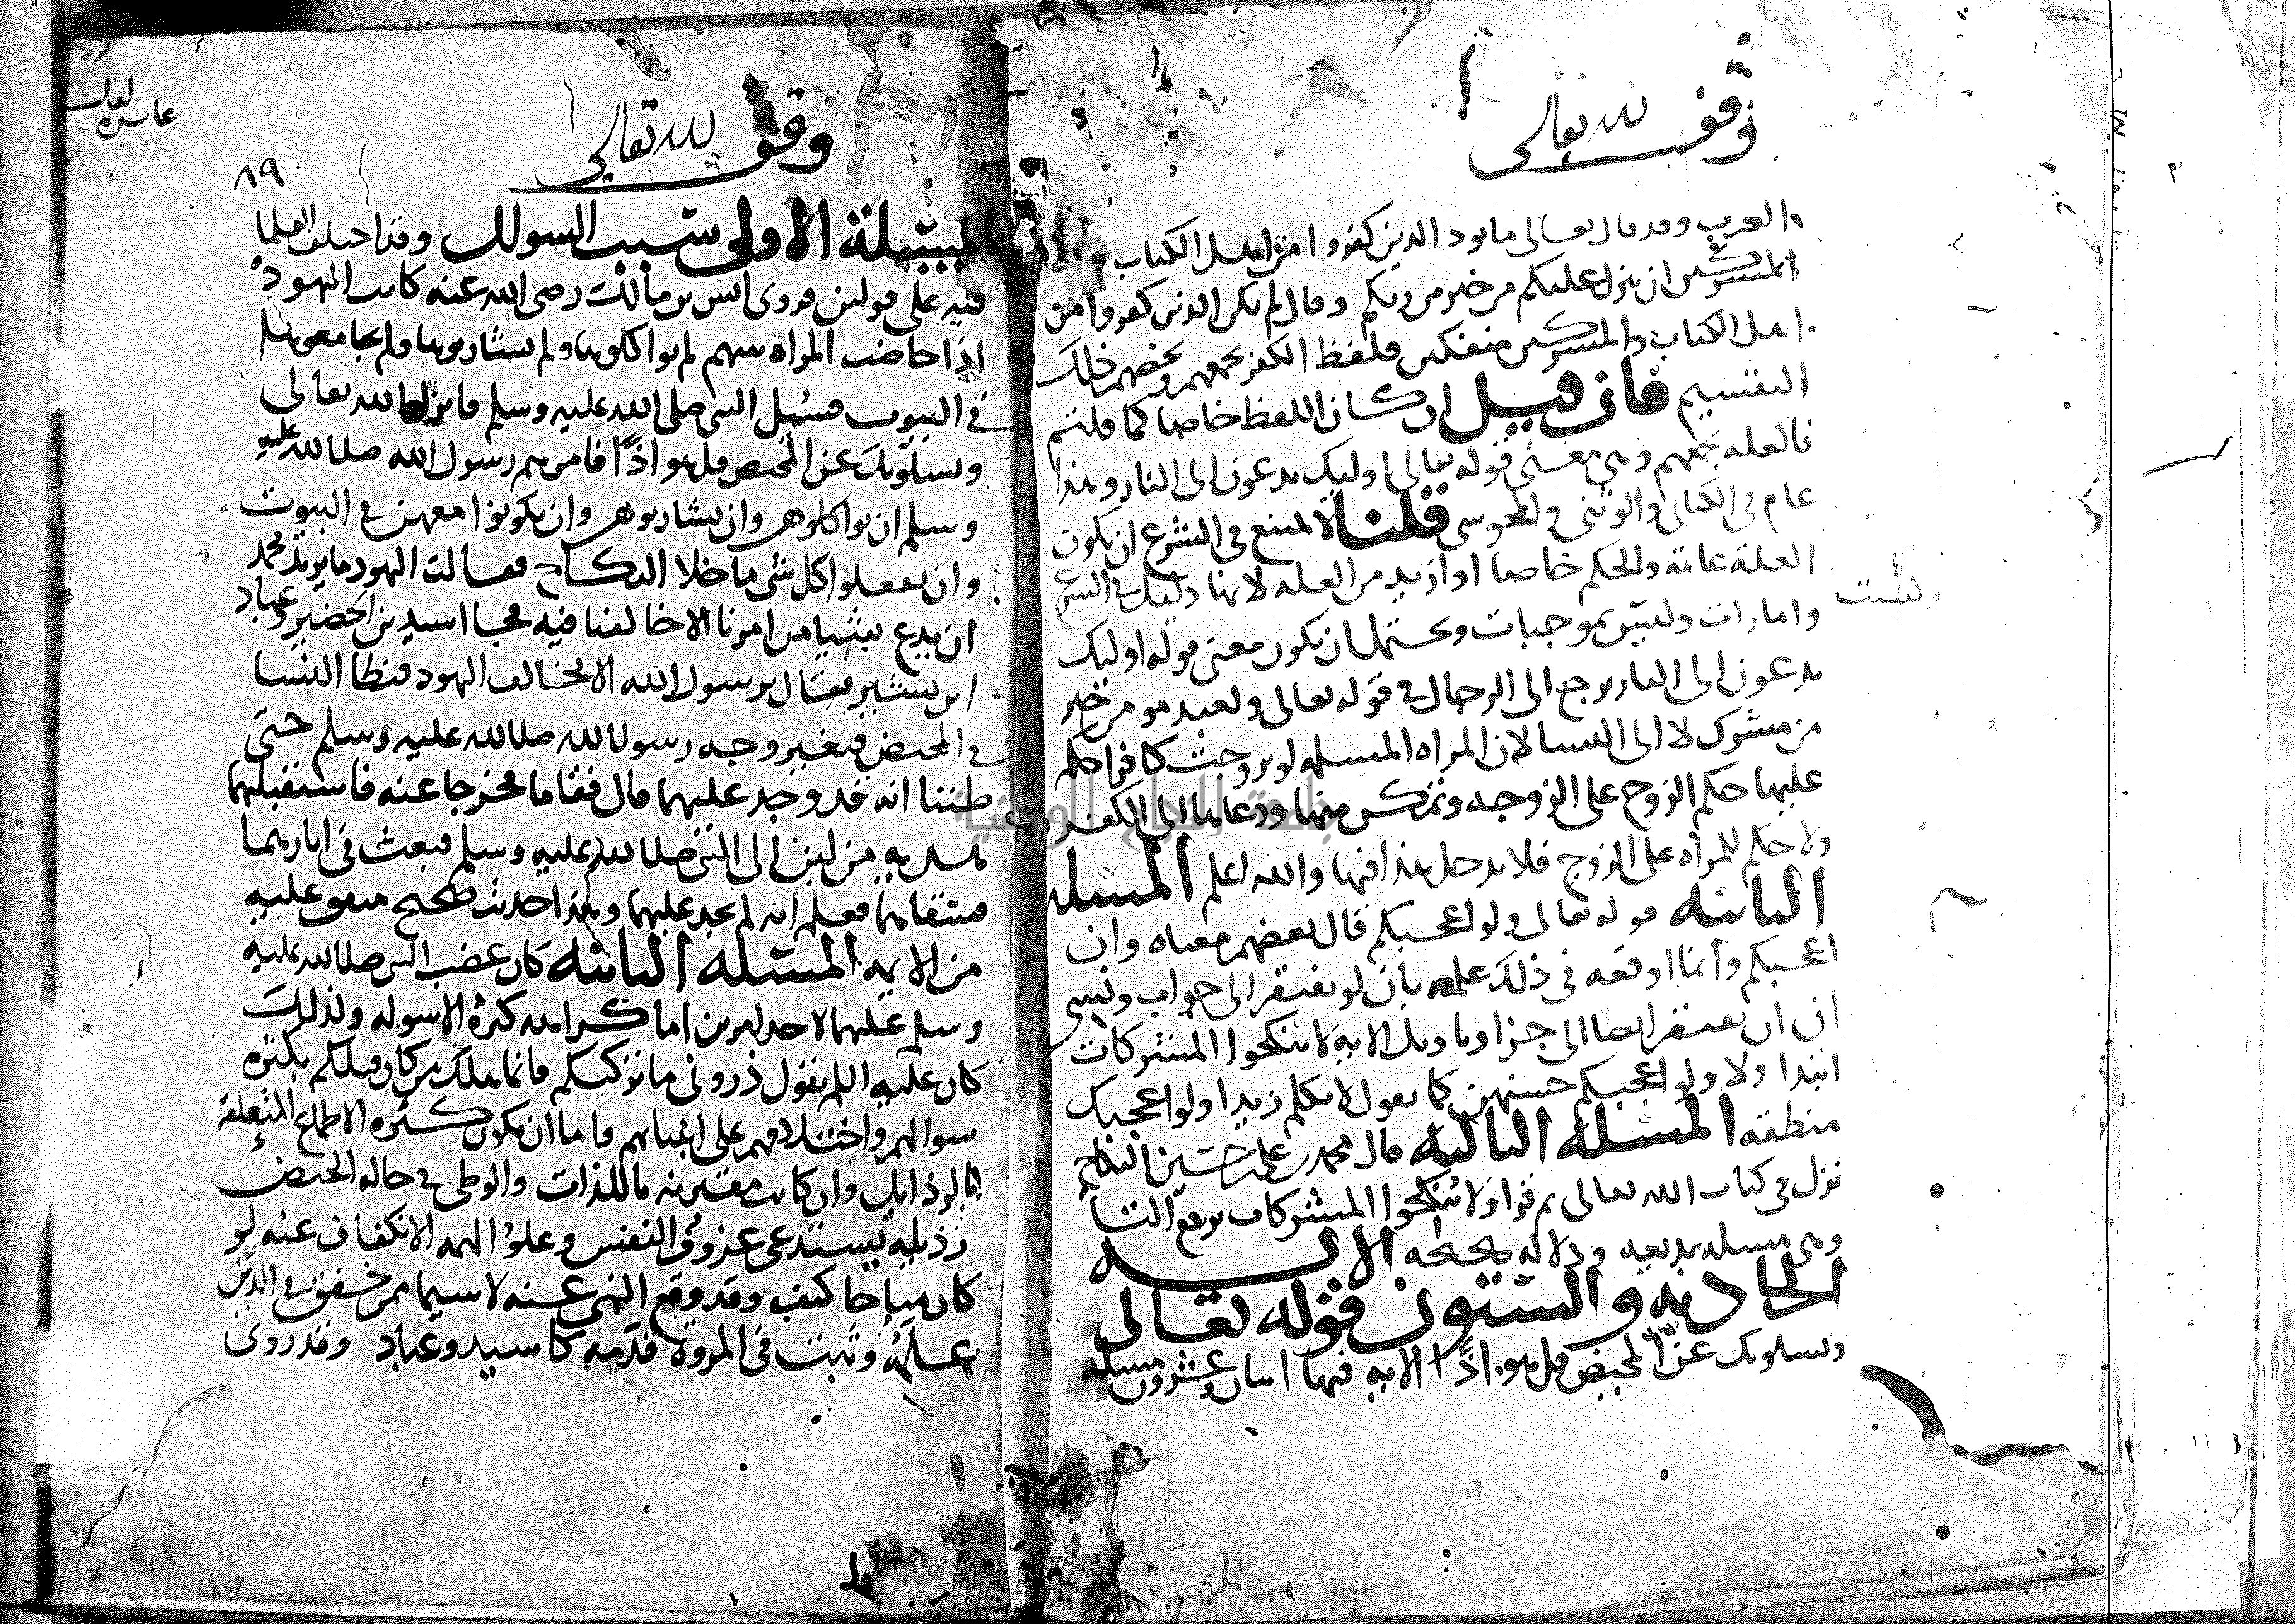 وقف لله تعالى
العرب وقد قال تعالى ما يود الذين كفروا من اهل الكتاب ولا
المشركين ان ينزل عليكم من خير من ربكم وقال لم يكن الذين كفروا من
اهل الكتاب والمشركين منفكين فلفظ الكفر يجمعهم ويخصهم ذلك
التقسيم فان قيل ان كان اللفظ خاصا كما قلتم
فالعله تجمعهم وهي معنى قوله تعالى اوليك يدعون الى النار وهذا
عام في الكتابي والوثني والمجوسي قلنا لا يمتنع في الشرع ان يكون
العلة عامة والحكم خاصا او ازيد من العله لانها دليل في الشرع
وامارات وليس بموجبات ويحتمل ان يكون معنى قوله اوليك
وليست
يدعون الى النار يرجع الى الرجال في قوله تعالى ولعبد مومن خير
من مشرك لا الى النسا لان المراه المسلمه لو تزوجت كافرا حكم
عليها حكم الزوج على الزوجه وتمكن منها ودعاها الى الكفر
ولا حكم للمراه على الزوج فلا يدخل هذا فيها والله اعلم المسله
الثانيه قوله تعالى ولو اعجبكم قال بعضهم معناه وان
اعجبكم وانما اوقعه في ذلك علمه بان لو تفتقر الى جواب ونسي
ان ان تفتقر ايضا الى جزا وتاويل الايه لا تنكحوا المشركات
ابتدا ولا ولو اعجبكم حسنهن كما تقول لا تكلم زيدا ولو اعجبك
منطقه المسله الثالثه قال محمد بن علي بن حسين النكاح
نزل في كتاب الله تعالى ثم قرا ولا تنكحوا المشركات برفع التا
وهي مسله بديعه ودلاله صحيحه الايه
الحاديه والستون قوله تعالى
ويسلونك عن المحيض قل هو اذا الايه فيها اثنان وعشرون مسله
وقف لله تعالى
٨٩
المسئلة الاولى سبب السوال وقد اختلف العلما
فيه على قولين فروى انس بن مالك رضى الله عنه كانت اليهود
اذا حاضت المراه منهم لم يواكلوها ولم يشاربوها ولم يجامعوها
في البيوت فسئل النبي صلى الله عليه وسلم فانزل الله تعالى
ويسلونك عن المحيض قل هو اذا فامرهم رسول الله صلى الله عليه
وسلم ان يواكلوهن وان يشاربوهن وان يكونوا معهن في البيوت
وان يفعلوا كل شي ما خلا النكاح فقالت اليهود ما يريد محمد
ان يدع شيئا من امرنا الا خالفنا فيه فجا اسيد بن الحضير وعباد
ابن بشير فقال يرسول الله الا نخالف اليهود فنطا النسا
في المحيض فتغير وجه رسول الله صلى الله عليه وسلم حتى
ظننا انه قد وجد عليهما قال فقاما فخرجا عنه فاستقبلهما
هديه من لبن الى النبي صلى الله عليه وسلم فبعث في اثارهما
فسقاهما فعلم انه لم يجد عليهما وهذا حديث صحيح متفق عليه
من الايمه المسئله الثانيه كان غضب النبي صلى الله عليه
وسلم عليهما لاحد امرين اما كراهه كثرة الاسوله ولذلك
كان عليه السلم يقول ذروني ما تركتكم فانما هلك من كان قبلكم بكثره
سوالهم واختلافهم على انبيايهم واما ان يكون كثره الاطماع المتعلقه
بالرذايل وان كانت مقترنه باللذات والوطى في حاله الحيض
رذيله يستدعى عزوف النفس وعلو الهمه الانكفاف عنه لو
كان مباحا كيف وقد وقع النهى عنه لا سيما ممن خفق في الدين
علمه وثبت في المروه قدمه كاسيد وعباد وقد روى